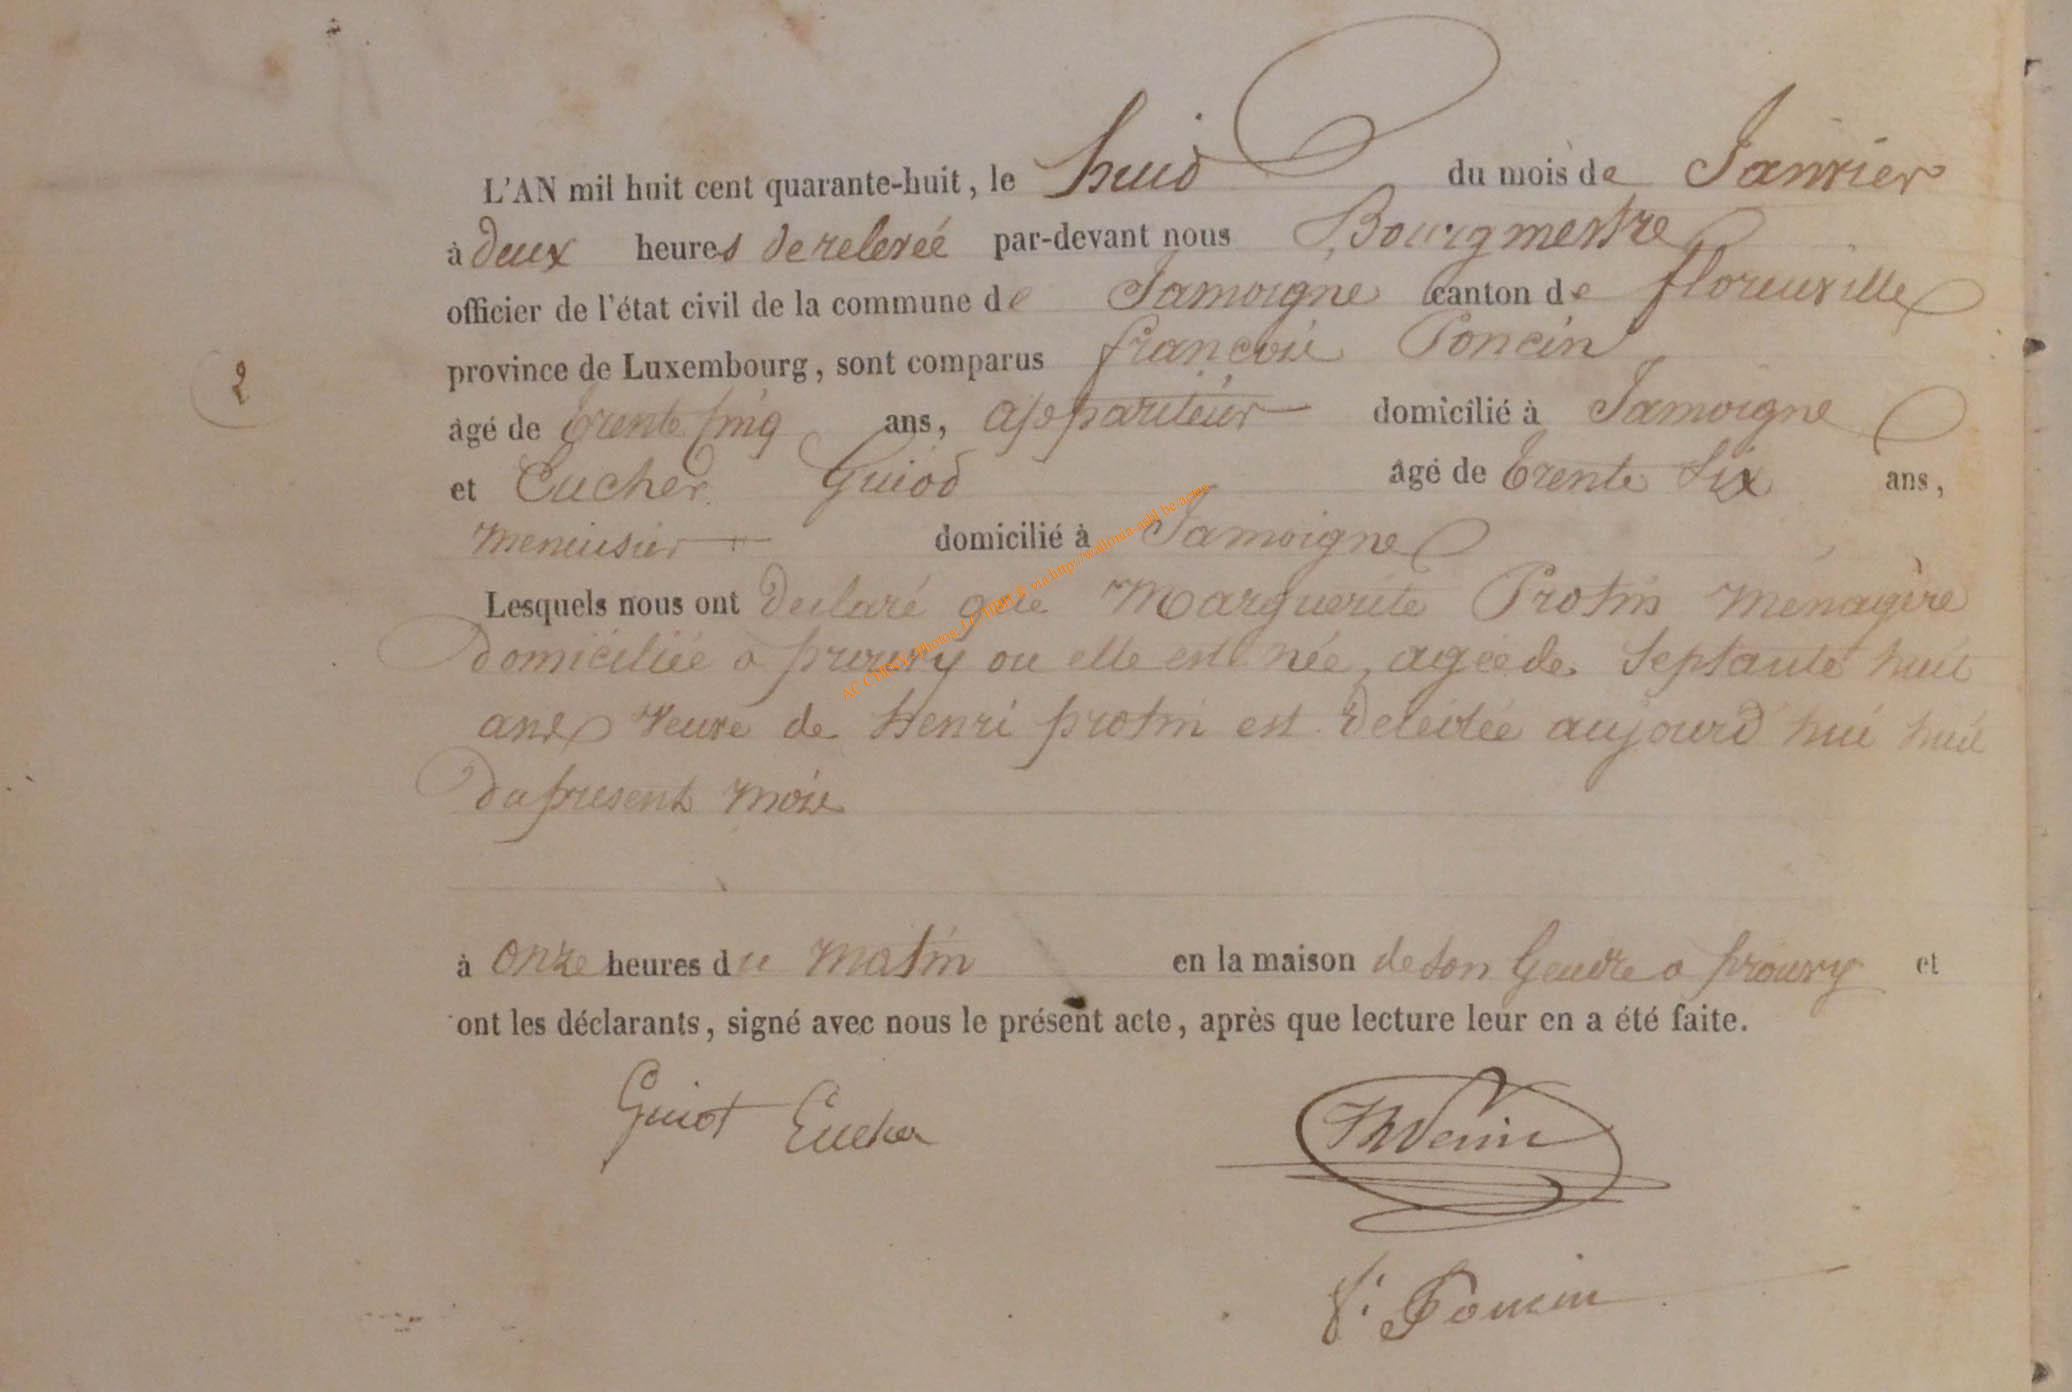 L'AN mil huit cent quarante-huit, le huid du mois de Janvier
à deux heures de relevéé par-devant nous Bourgmestre
officier de l'état civil de la commune de Jamoigne canton de florenville
province de Luxembourg, sont comparus françois Poncin
2
âgé de trente cinq ans, appariteur domicilié à Jamoigne
et Eucher Guiod âgé de trente six ans,
menuisier domicilié à Jamoigne
Lesquels nous ont declaré que Marguerite Protin menagère
domiciliée a prouvy ou elle est née, agée de septante huit
ans veuve de henri protin est decédée aujourd'hui huit
du present mois
à onze heures du matin en la maison de son gendre a prouvy et
ont les déclarants, signé avec nous le présent acte, après que lecture leur en a été faite.
Guiot Eucher
f. Poncin